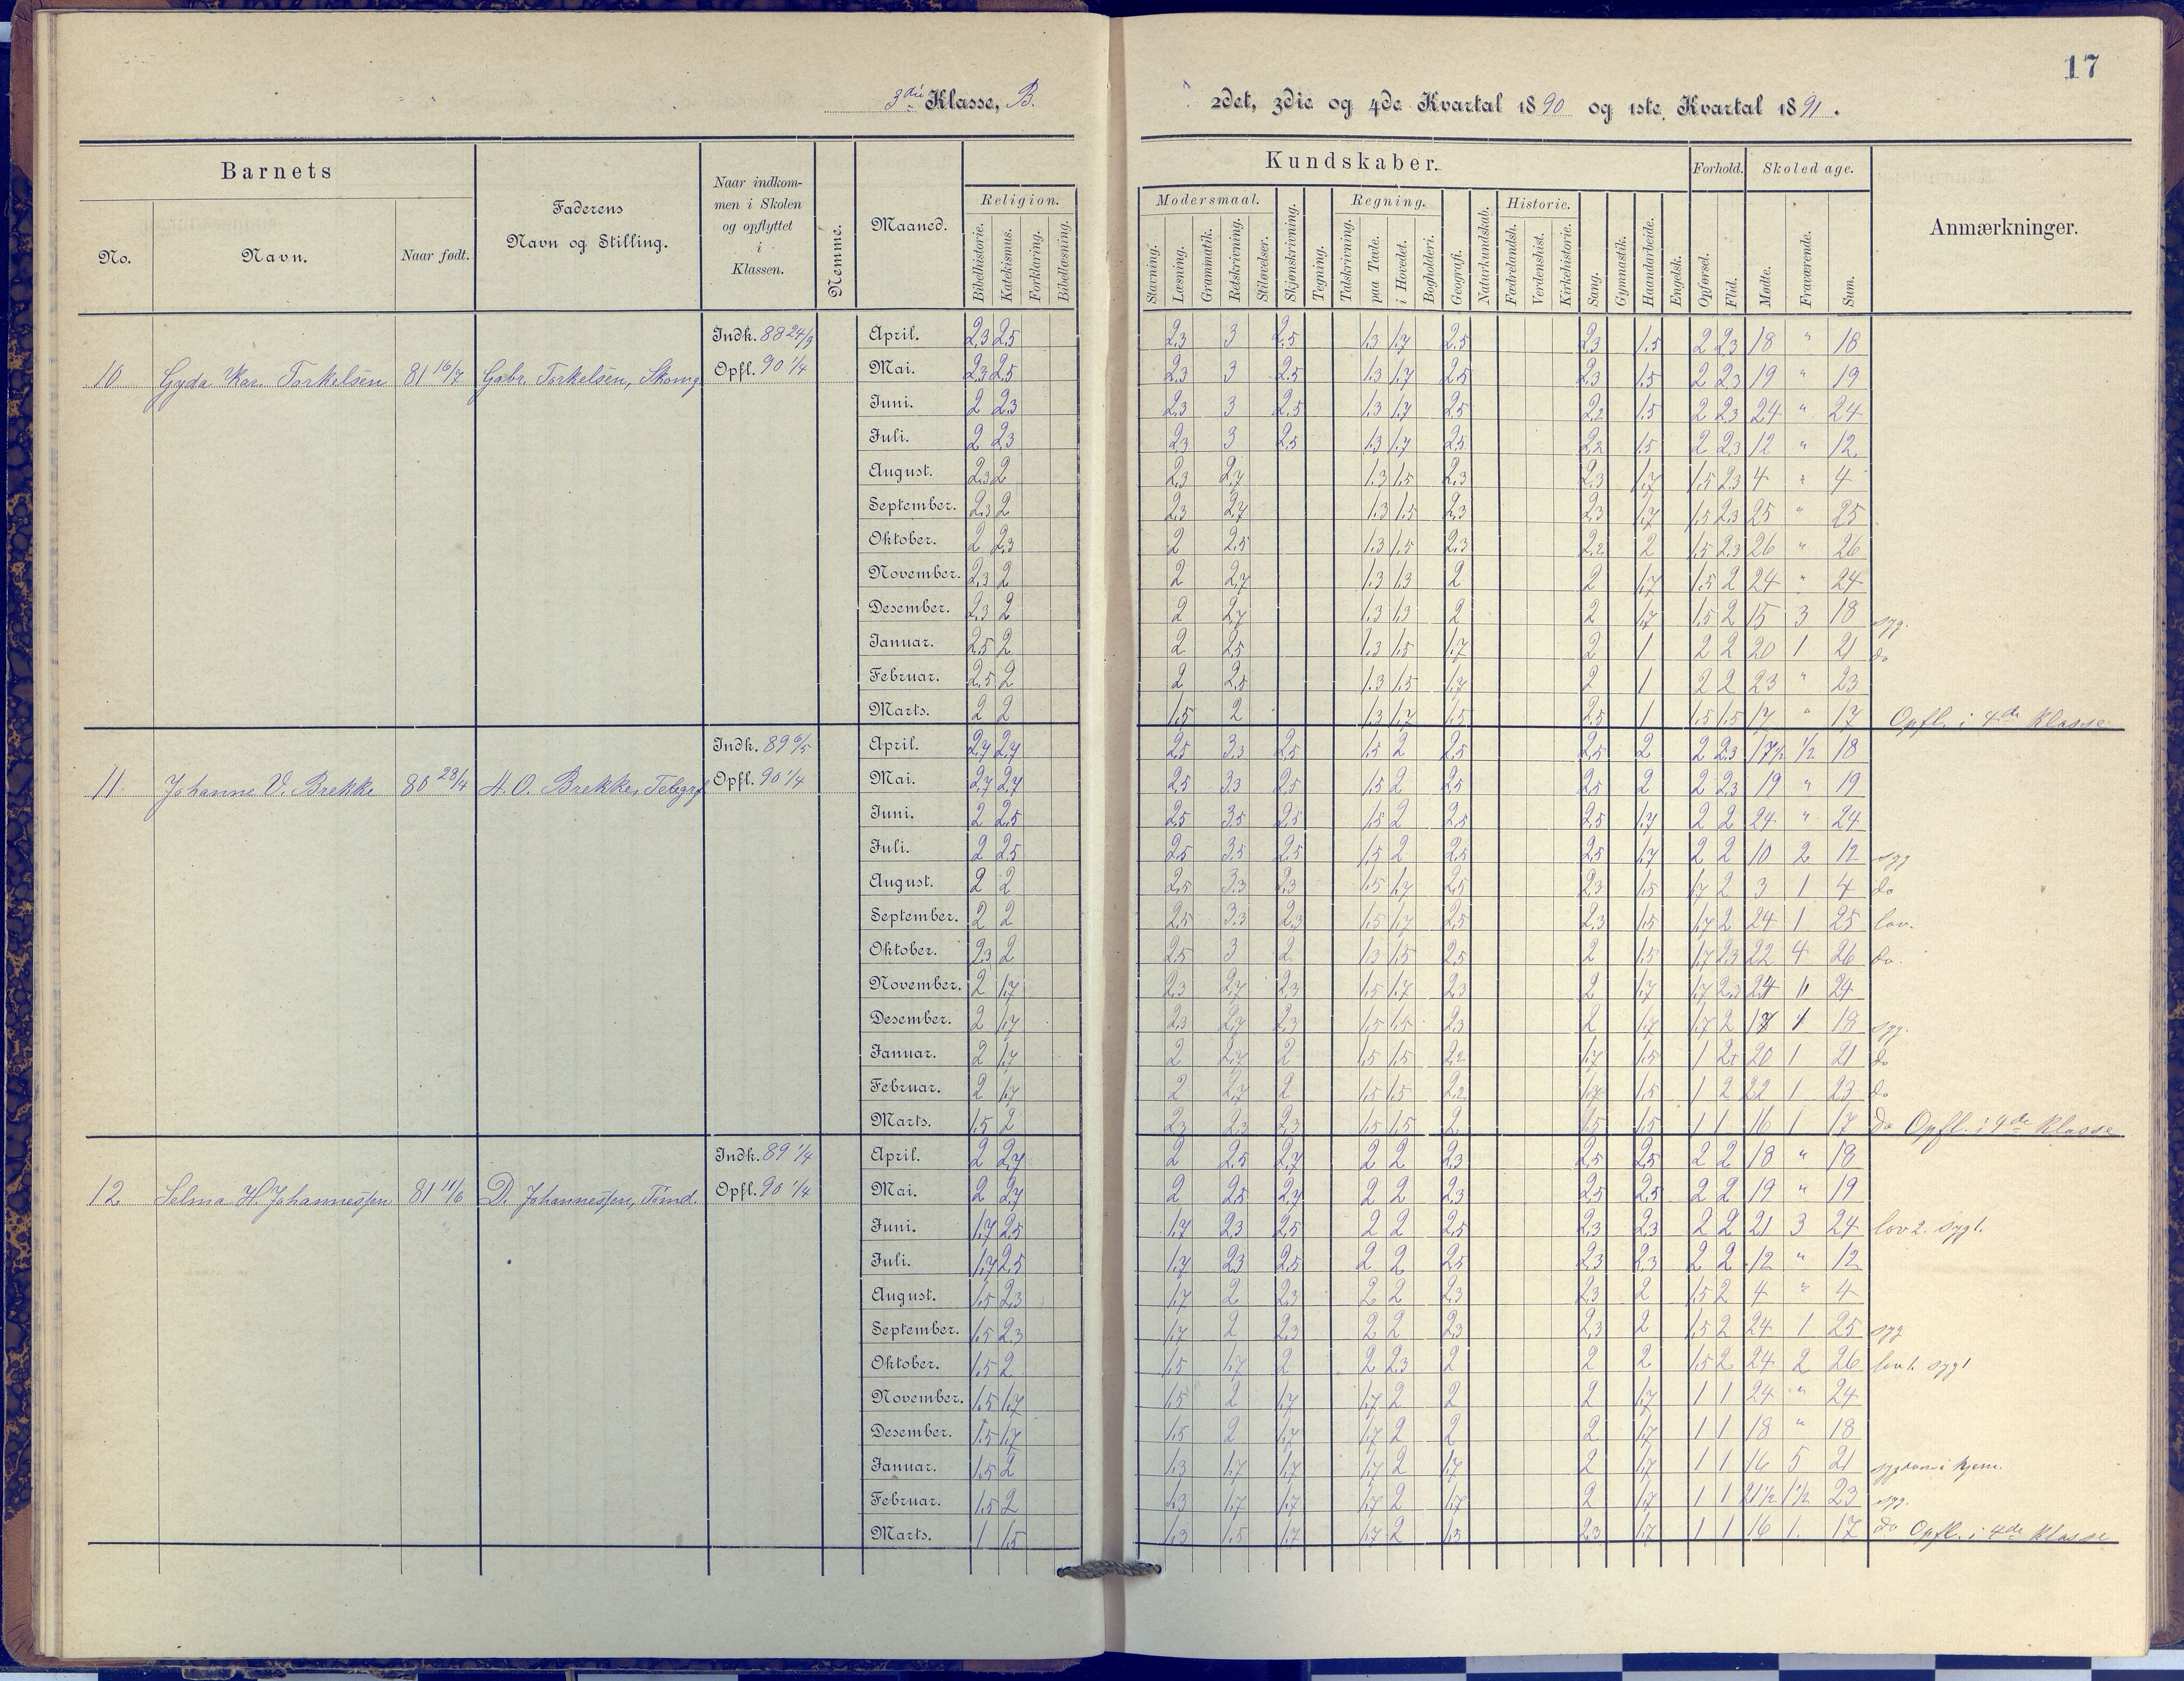 17
3die Klasse, B. 2det, 3die og 4de Kvartal 1890 og 1ste Kvartal 1891.
Barnets
No.
Navn.
Naar født.
Faderens
Navn og Stilling.
Naar indkom-
men i Skolen
og opflyttet
i
Klassen.
Nemme.
Maaned.
Religion.
Bibelhistorie.
Katekismus.
Forklaring.
Bibellæsning.
Kundskaber.
Modersmaal.
Stavning.
Læsning.
Grammatik.
Retskrivning.
Stiløvelser.
Skjønskrivning.
Tegning.
Regning.
Talskrivning.
paa Tavle.
i Hovedet.
Bogholderi.
Geografi.
Naturkundskab.
Historie.
Fædrelandsh.
Verdenshist.
Kirkehistorie.
Sang.
Gymnastik.
Haandarbeide.
Engelsk.
Forhold.
Opførsel.
Flid.
Skoledage.
Mødte.
Fraværende.
Sum.
Anmærkninger.
10 Gyda Kar. Torkelsen 81 16/7 Gabr. Torkelsen, Skomg Indk. 88 24/9 Opfl. 90 1/4
April. 2,3 2,5 2,3 3 2,5 1,3 1,7 2,5 2,3 1,5 2 2,3 18 " 18
Mai. 2,3 2,5 2,3 3 2,5 1,3 1,7 2,5 2,3 1,5 2 2,3 19 " 19
Juni. 2 2,3 2,3 3 2,5 1,3 1,7 2,5 2,2 1,5 2 2,3 24 " 24
Juli. 2 2,3 2,3 3 2,5 1,3 1,7 2,5 2,2 1,5 2 2,3 12 " 12
August. 2,3 2 2,3 2,7 1,3 1,5 2,3 2,3 1,7 1,5 2,3 4 " 4
September. 2,3 2 2,3 2,7 1,3 1,5 2,3 2,3 1,7 1,5 2,3 25 " 25
Oktober. 2 2,3 2 2,5 1,3 1,5 2,3 2,2 2 1,5 2,3 26 " 26
November. 2,3 2 2 2,7 1,3 1,3 2 2 1,7 1,5 2 24 " 24
Desember. 2,3 2 2 2,7 1,3 1,3 2 2 1,7 1,5 2 15 3 18 syg.
Januar. 2,5 2 2 2,5 1,3 1,5 1,7 2 1 2 2 20 1 21 do
Februar. 2,5 2 2 2,5 1,3 1,5 1,7 2 1 2 2 23 " 23
Marts. 2 2 1,5 2 1,3 1,7 1,5 2,5 1 1,5 1,5 17 " 17 Opfl. i 4de Klasse
11 Johanne V. Brekke 80 28/4 A. O. Brekke, Telegrf Indk. 89 6/5 Opfl. 90 1/4
April. 2,7 2,7 2,5 3,3 2,5 1,5 2 2,5 2,5 2 2 2,3 17½ ½ 18
Mai. 2,7 2,7 2,5 3,3 2,5 1,5 2 2,5 2,5 2 2 2,3 19 " 19
Juni. 2 2,5 2,5 3,5 2,5 1,5 2 2,5 2,5 1,7 2 2 24 " 24
Juli. 2 2,5 2,5 3,5 2,5 1,5 2 2,5 2,5 1,7 2 2 10 2 12 syg
August. 2 2 2,5 3,3 2,3 1,5 1,7 2,5 2,3 1,5 1,7 2 3 1 4 do
September. 2 2 2,5 3,3 2,3 1,5 1,7 2,5 2,3 1,5 1,7 2 24 1 25 lov.
Oktober. 2,3 2 2,5 3 2 1,3 1,5 2,5 2 1,5 1,7 2,3 22 4 26 do.
November. 2 1,7 2,3 2,7 2,3 1,5 1,7 2,3 2 1,7 1,7 2,3 24 " 24
Desember. 2 1,7 2,3 2,7 2,3 1,5 1,5 2,3 2 1,7 1,7 2 17 1 18 syg.
Januar. 2 1,7 2 2,7 2 1,5 1,5 2,2 1,7 1,5 1 2 20 1 21 do
Februar. 2 1,7 2 2,7 2 1,5 1,5 2,2 1,7 1,5 1 2 22 1 23 do
Marts. 1,5 2 2,3 2,3 2,3 1,5 1,5 2 1,5 1,5 1 1 16 1 17 do Opfl. i 4de Klasse
12 Selma H. Johannessen 81 11/6 D. Johannessen, Tømd. Indk. 89 1/4 Opfl. 90 1/4
April. 2 2,7 2 2,5 2,7 2 2 2,3 2,5 2,5 2 2 18 " 18
Mai. 2 2,7 2 2,5 2,7 2 2 2,3 2,5 2,5 2 2 19 " 19
Juni. 1,7 2,5 1,7 2,3 2,5 2 2 2,5 2,3 2,3 2 2 21 3 24 lov 2. syg 1.
Juli. 1,7 2,5 1,7 2,3 2,5 2 2 2,5 2,3 2,3 2 2 12 " 12
August. 1,5 2,3 1,7 2 2,3 2 2 2,3 2,3 2 1,5 2 4 " 4
September. 1,5 2,3 1,7 2 2,3 2 2 2,3 2,3 2 1,5 2 24 1 25 syg
Oktober. 1,5 2 1,5 1,7 2 2 2,3 2 2 2 1,5 2 24 2 26 lov 1. syg 1
November. 1,5 1,7 1,5 2 1,7 1,7 2 2 2 1,7 1 1 24 " 24
Desember. 1,5 1,7 1,5 2 1,7 1,7 2 2 2 1,7 1 1 18 " 18
Januar. 1,5 2 1,3 1,7 1,7 1,7 2 1,7 2 1,7 1 1 16 5 21 sygdom i hjem.
Februar. 1,5 2 1,3 1,7 1,7 1,7 2 1,7 2 1,7 1 1 21½ 1½ 23 syg.
Marts. 1 1,5 1,3 1,5 1,7 1,7 2 1,5 2,3 1,7 1 1 16 1. 17 do Opfl. i 4de Klasse